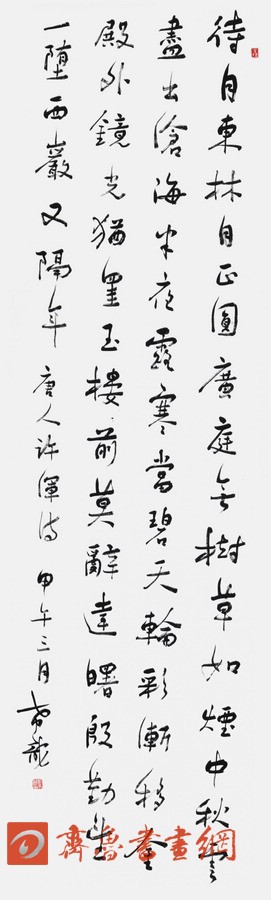 待月東林月正圓廣庭無樹草如煙中秋雲
盡出滄海半夜露寒當碧天輪彩漸移金
殿外鏡光猶罣玉樓前莫辭達曙殷勤望
一墮西巖又隔年 唐人許渾詩 甲午三月 龍
齊魯書畫網